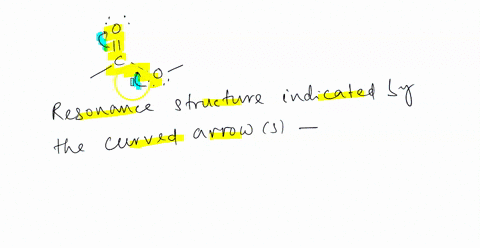 O
C
O
Resonance structure indicated by
the curved arrow(s) —